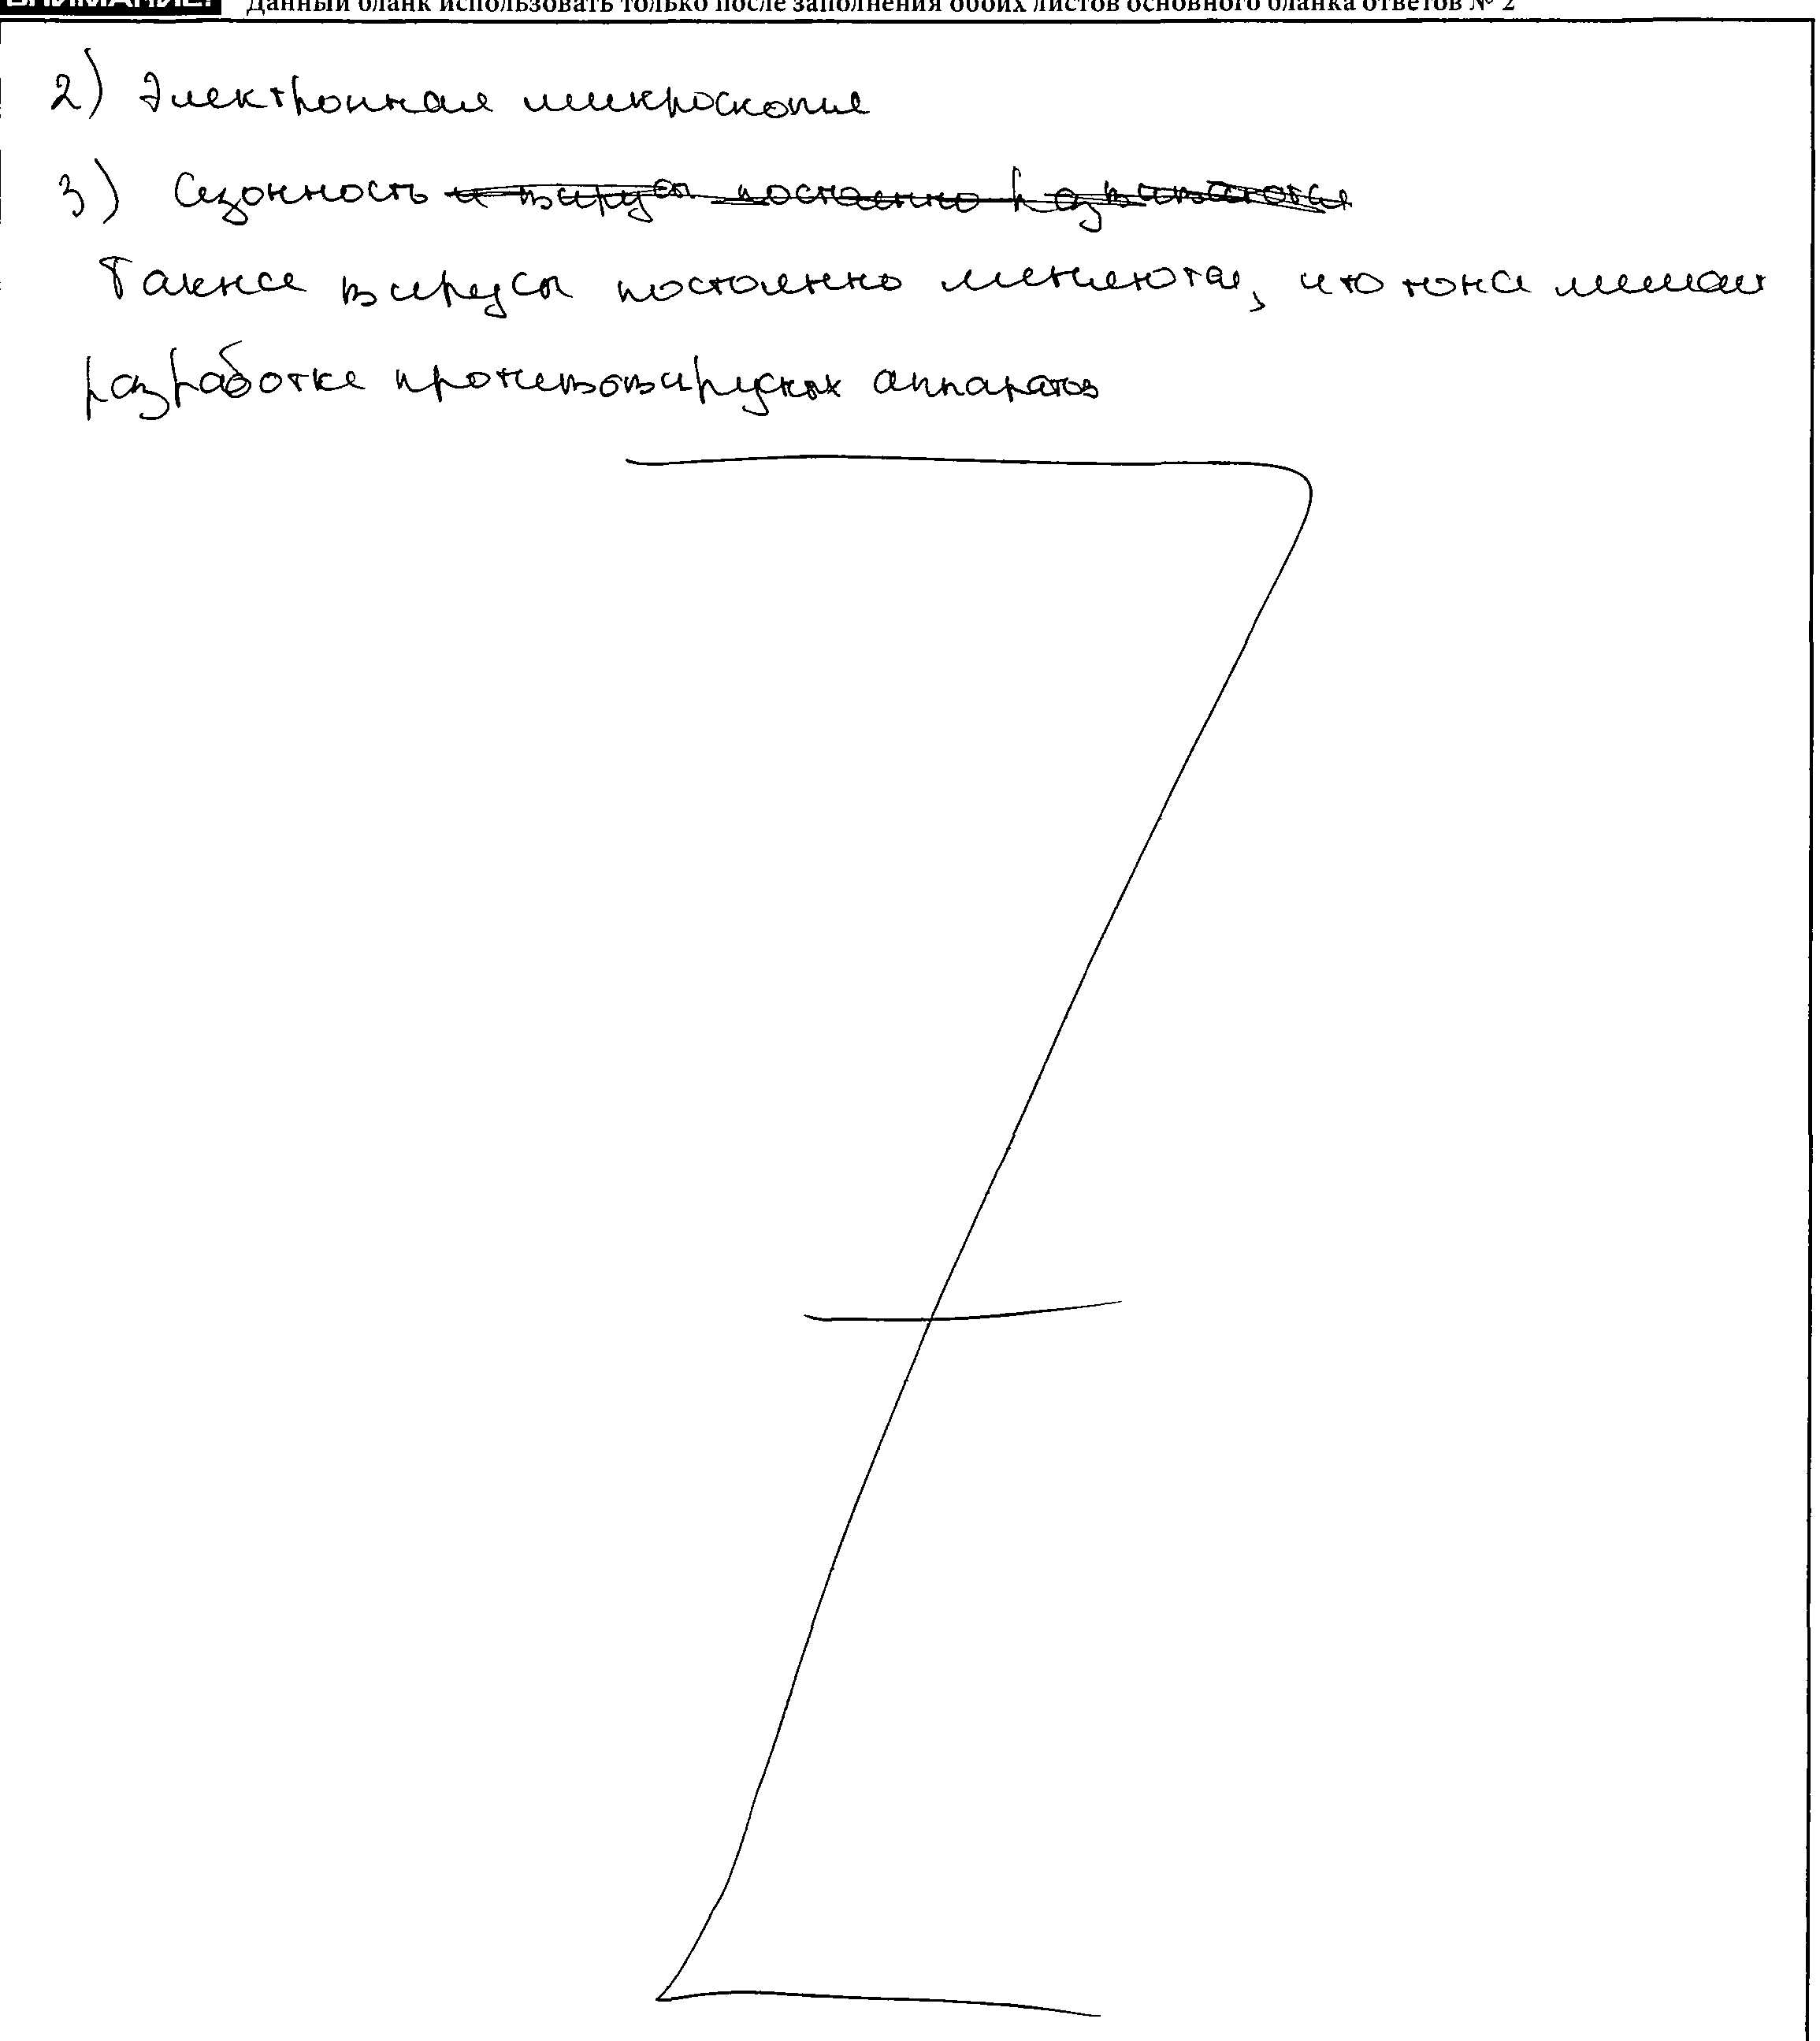 ВНИМАНИЕ! Данный бланк использовать только после заполнения обоих листов основного бланка ответов № 2
2) Электронная микроскопия
3) Сезонность и вирусы постоянно развиваются
Также вирусы постоянно меняются, что тоже мешает
разработке противовирусных аппаратов